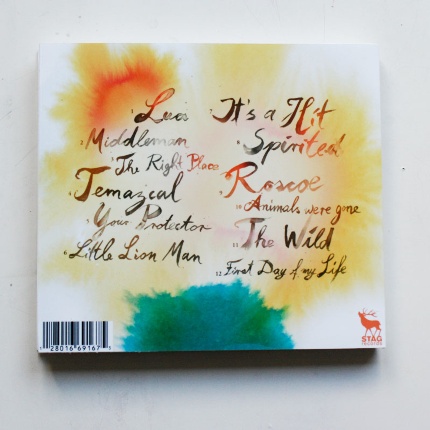 1 Lua
2 Middleman
3 The Right Place
4 Temazcal
5 Your Protector
6 Little Lion Man
7 It's a Hit
8 Spirited
9 Roscoe
10 Animals were gone
11 The Wild
12 First Day of my Life
28016 69167
STAG
records